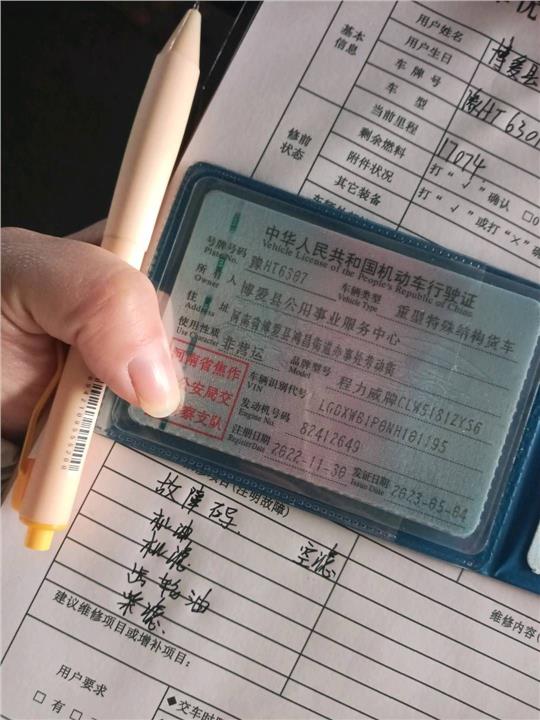 基本信息
用户姓名
博爱县
用户生日
车牌号
豫HT630
车型
修前状态
当前里程
17074
剩余燃料
打“√”确认
附件状况
打“√”或打“×”确
其它装备
中华人民共和国机动车行驶证
Vehicle License of the People's Republic of China
号牌号码 豫HT6307 车辆类型 重型特殊结构货车
Plate No. Vehicle Type
所有人 博爱县公用事业服务中心
Owner
住址 河南省博爱县鸿昌街道办事处劳动街
Address
使用性质 非营运 品牌型号 程力威牌CLW5181ZYS6
Use Character Model
河南省焦作
公安局交
警支队
车辆识别代号 LGDXWB1P0NH101195
VIN
发动机号码 82412649
Engine No.
注册日期 2022-11-30 发证日期 2023-05-04
Register Date Issue Date
项目(注明故障)
故障码
机油 空滤
机滤
齿轮油
柴滤
维修内容(
建议维修项目或增补项目:
用户要求
□有
◆交车时